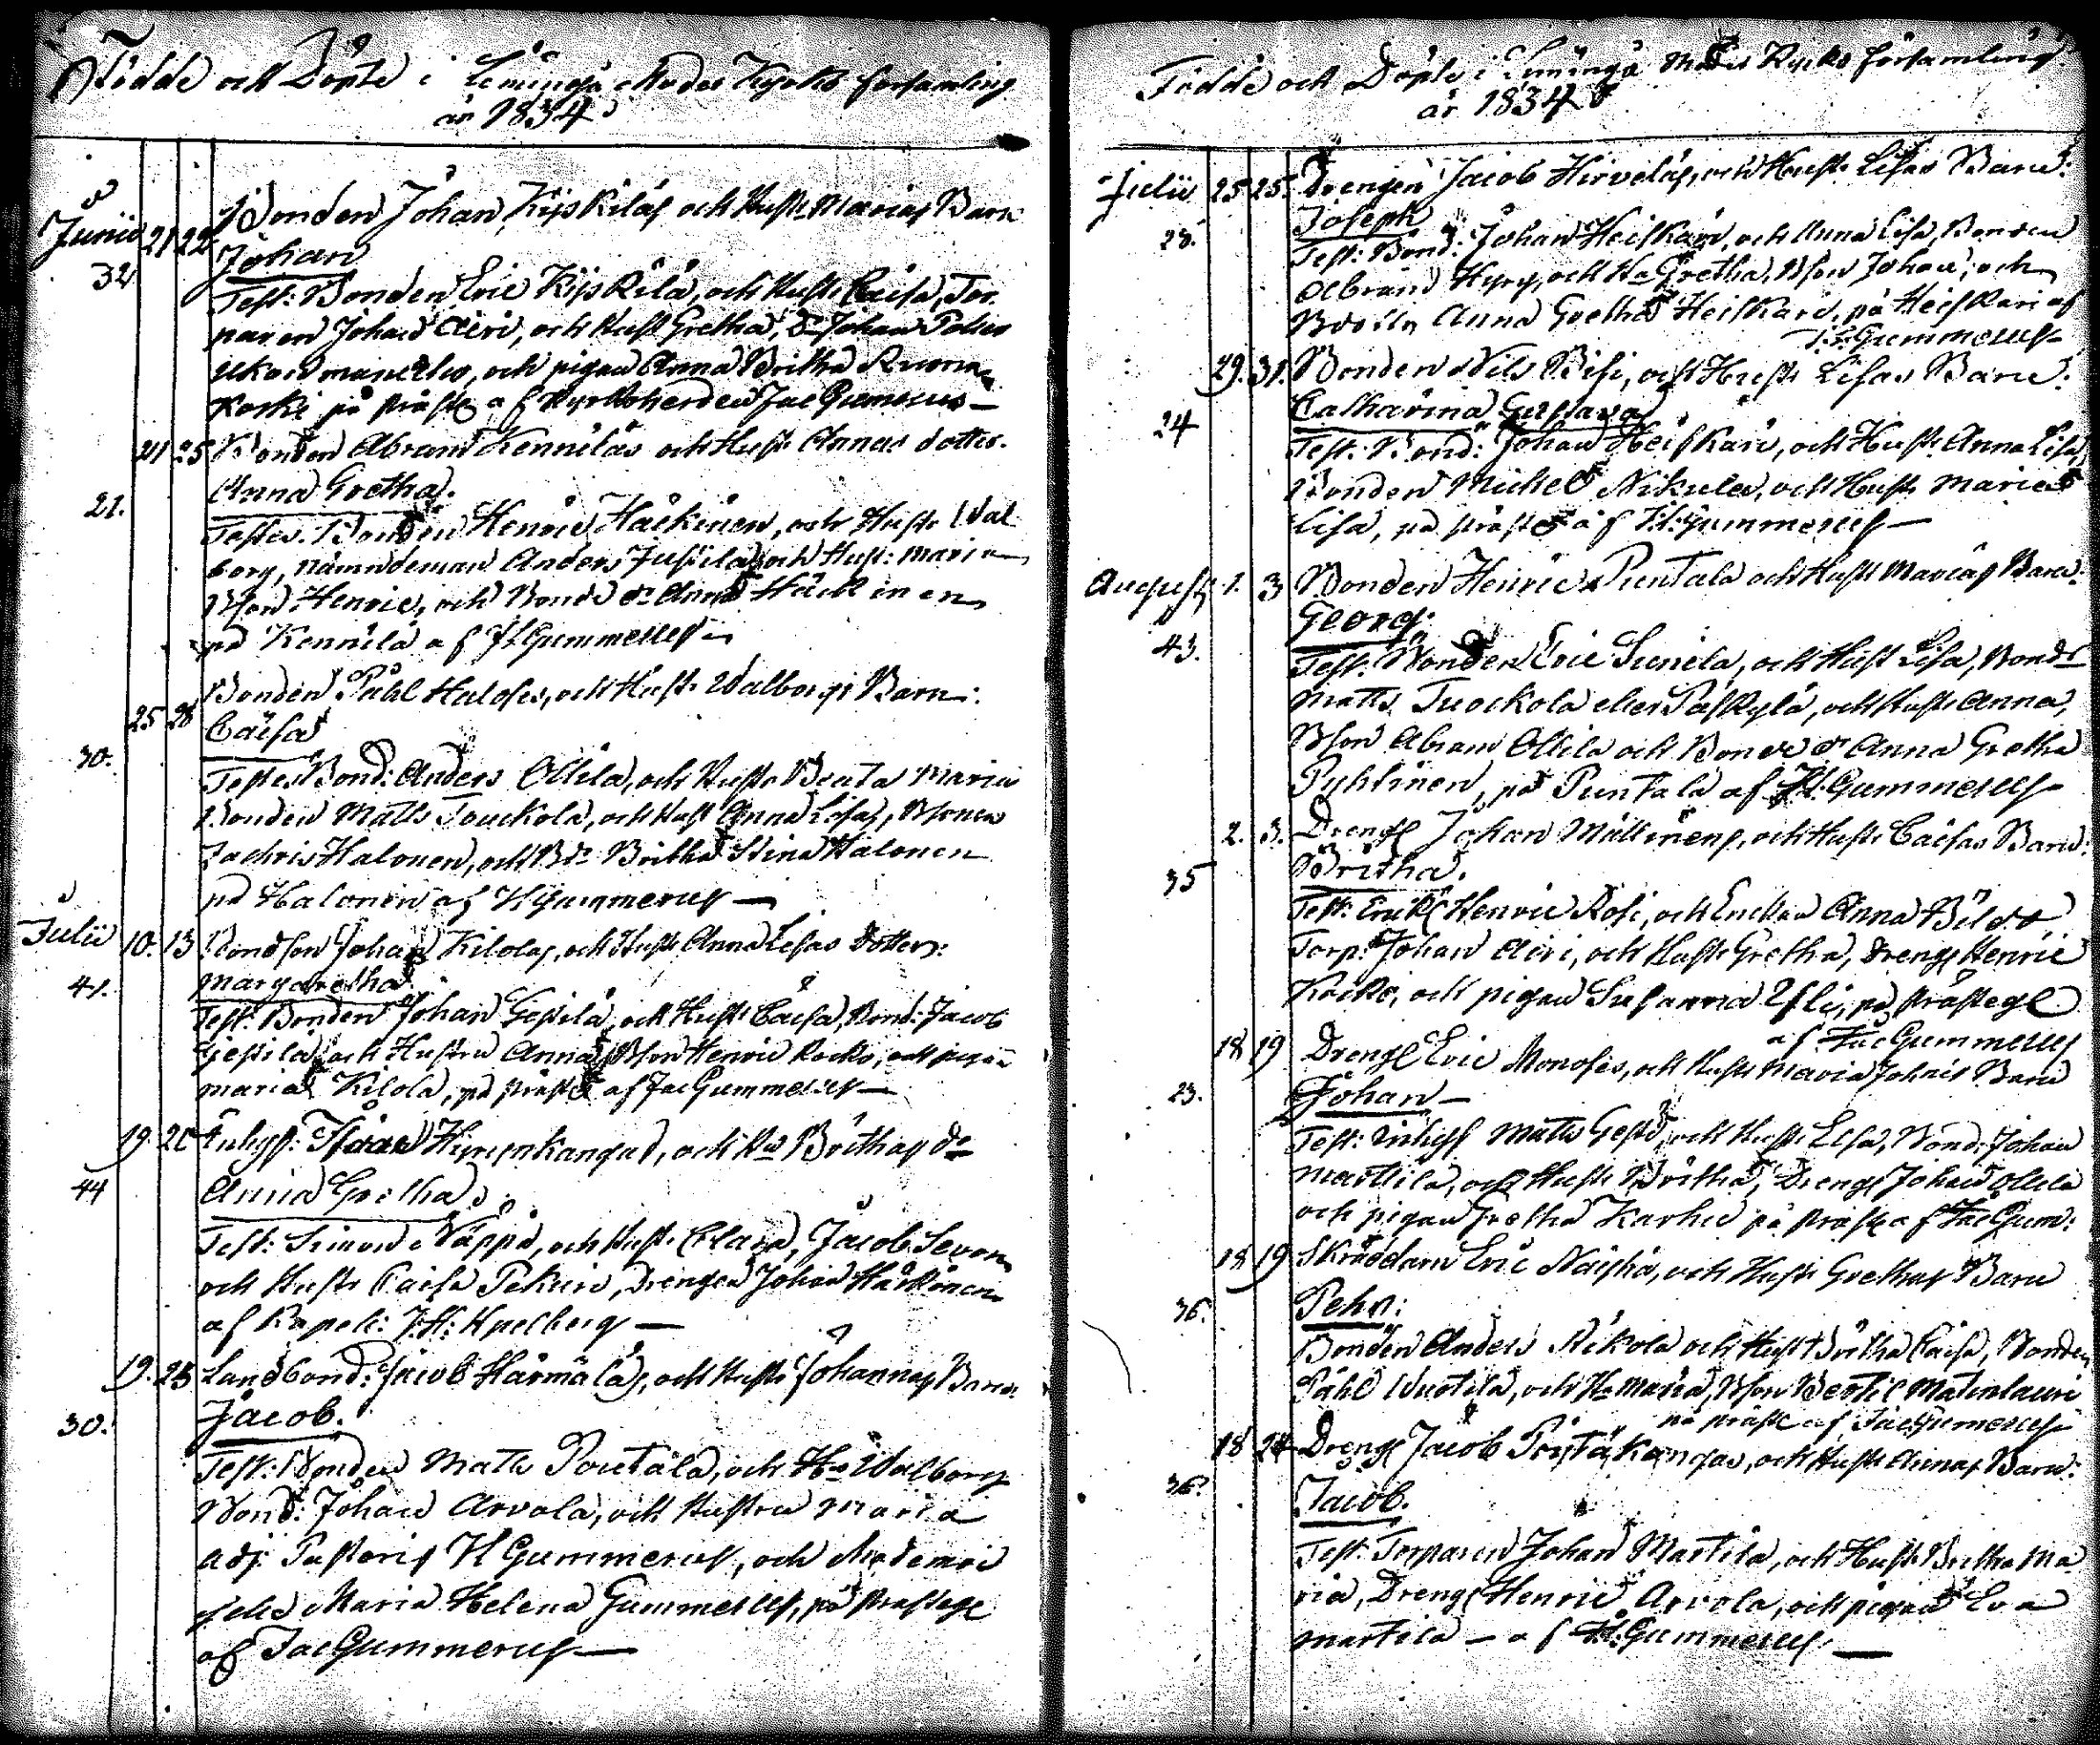 Födde och Döpte i Limingo Moder Kyrko församling
år 1834
Junii 21 22 Bonden Johan Kyskiläs och Hust. Marias Barn
Johan
32
Test: Bonden Eric Kyskilä, och Hust. Caisa, Tor-
paren Johan Airi, och Hust Gretha, Johan
och pigan Anna Britha Ruona
koski på Präste af Kyrkoherden Jac Gummerus
21 25 Bonden Abram Kenniläs och Hust. Annas dotter.
Anna Gretha.
21.
Testes. Bonden Henric Häikinen, och Hust. Wal
borg, nämndeman Anders Jussila och Hust: Maria
Bson Henric, och Bonde dr Anna Häikinen
på Kennilä af H Gummerus
Bonden Påhl Haloses, och Hust. Walborgs Barn:
25 28 Caisa
30.
Testes Bond: Anders Ollila, och Hust. Beata Maria
Bonden Matts Touckola, och Hust Anna Lisa, Bsonen
Zachris Halonen, och Bdr Britha Stina Halonen
på Halonen af H Gummerus
Julii 10. 13 Bondson Johan Kilolas, och Hust. Anna Lisas dotter:
Margaretha
41.
Test: Bonden Johan Gepilä och Hust. Caisa, Bond: Jacob
och Hustru Anna, Bson Henric Kocko, och pigan
Maria Kilola, på Präste af Jac Gummerus
19. 20 Inhys: Hirvenkangas, och Ha Brithas dr
Anna Gretha
44
Test: Simon Näppä, och Hust. Clara, Jacob Sevon
och Hust. Caisa Pekuri, Drengen Johan Häikinen
af Kapell: J:H: Kjelberg
19. 25 Landbond: Jacob Härmäläs, och Hust. Johannas Barn.
Jacob.
30.
Test: Bonden Matts Pentala, och Ha Walborg
Bond: Johan Arvola, och Hustru Maria
Adj. Pastoris H Gummerus, och Mademoi
selle Maria Helena Gummerus, på Prästege
af Jac Gummerus
Födde och Döpte i Limingo Moder Kyrko församling
år 1834
Julii 25 25. Drengen Jacob Hirveläs, och Hust. Lisas Barn:
Joseph
28.
Test: Bond: Johan Heiskari, och Anna Lisa, Bonden
Abram Hyry, och Ha Gretha, Bson Johan, och
Anna Gretha Heiskari, på Heiskari af
Gummerus
29. 31. Bonden Nils Piisi, och Hust. Lisas Barn:
Catharina Gustava
24
Test: Bond: Johan Heiskari, och Hust. Anna Lisa,
Bonden Michel Nikula, och Hust. Maria
Lisa, på Präste af H: Gummerus
Augusti 1. 3 Bonden Henric Puntala och Hust Marias Barn:
Georg.
43.
Test. Bonden Eric Sunila, och Hust Lisa, Bond
Matts Tuockola eller Paskylä, och Hust. Anna,
Bson Abram Ollila och Bonde dr Anna Gretha
Pyhtinen, på Puntala af H: Gummerus
2. 3. Drengl Johan Mattinens, och Hust. Caisas Barn:
Britha.
35
Test: Henric Rosi, och Enckan Anna Bildo,
Torp: Johan Airi, och Hust. Gretha, Drengl Henric
Kocko, och pigan Susanna Yli, på Prästege
af Jac Gummerus
18 19 Drengl Eric Monoses, och Hust. Maria Johais Barn
Johan
23.
Test: Inhys Matts och Hust. Lisa, Bond: Johan
Marttila, och Hust. Britha, Drengl Johan Ollila
och pigan Gretha Karhu på Präste af Jac Gum:
18 19 Skräddarn Eric Näskä, och Hust. Grethas Barn
Pehr:
36.
Bonden Anders Nikola och Hust Britha Caisa, Bonden
Påhl Wuotila, och Ha Maria, Bson Bertil Matinlauri
på Präste af Jac Gummerus
18 24 Drengl Jacob Pöytäkangas, och Hust. Annas Barn:
Jacob.
36
Test: Torparen Johan Martila, och Hust. Britha Ma
ria, Drengl Henric Arvola, och pigan Eva
Martila af H. Gummerus